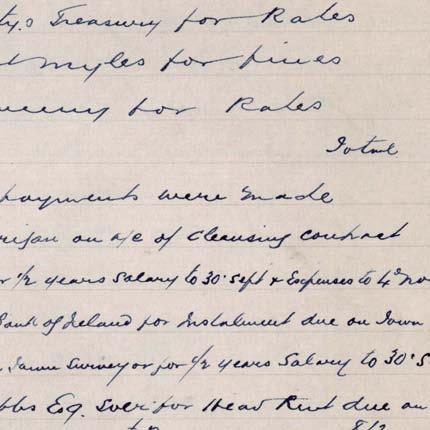 ty.s Treasury for Rates
myles for fines
for Rates
Total
payments were made
on a/c of Cleansing contract
1/2 years Salary to 30 Sept & Expenses to 4th No
Bank of Ireland for Instalment due on Town
Town Surveyor for 1/2 years Salary to 30 S
bbs Esq. Solr for Head Rent due on